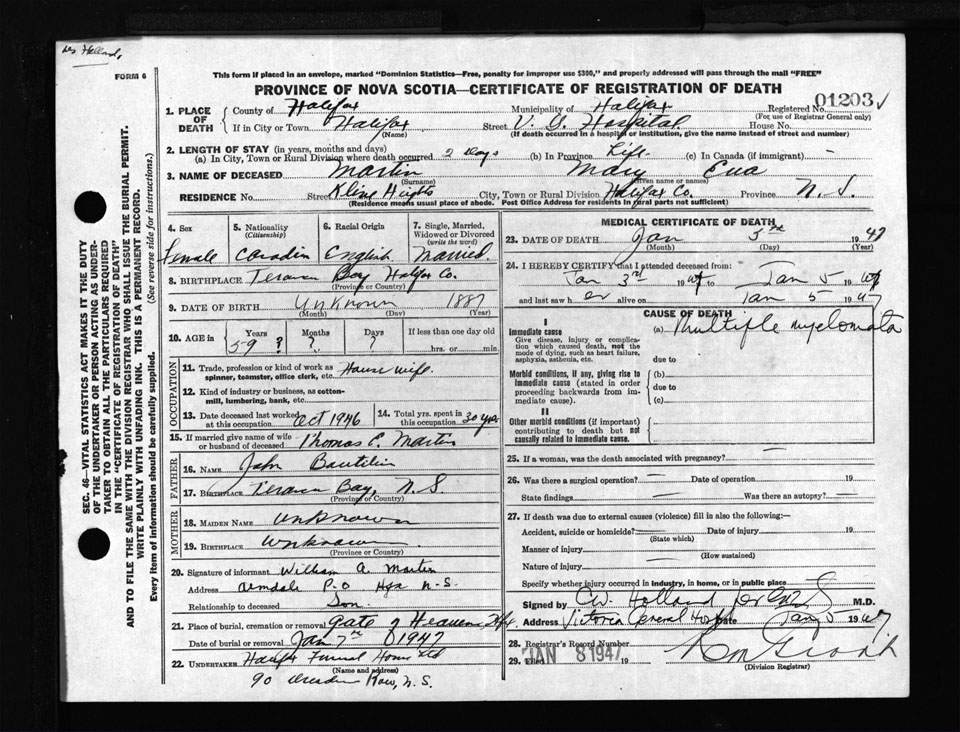 FORM 6
This form if placed in an envelope, marked "Dominion Statistics—Free, penalty for improper use $300," and properly addressed will pass through the mail "FREE"
PROVINCE OF NOVA SCOTIA—CERTIFICATE OF REGISTRATION OF DEATH
Registered No. 01203
(For use of Registrar General only)
1. PLACE OF DEATH
County of Halifax
Municipality of Halifax
If in City or Town Halifax
(Name)
Street V. G. Hospital House No.
(If death occurred in a hospital or institution, give the name instead of street and number)
2. LENGTH OF STAY (in years, months and days)
(a) In City, Town or Rural Division where death occurred 2 days (b) In Province Life (c) In Canada (if immigrant) —
3. NAME OF DECEASED Martin Mary Eva
(Surname) (Given name or names)
RESIDENCE Street Kline Hights City, Town or Rural Division Halifax Co. Province N. S.
(Residence means usual place of abode. Post Office Address for residents in rural parts not sufficient)
SEC. 46—VITAL STATISTICS ACT MAKES IT THE DUTY
OF THE UNDERTAKER OR PERSON ACTING AS UNDER-
TAKER TO OBTAIN ALL THE PARTICULARS REQUIRED
IN THE "CERTIFICATE OF REGISTRATION OF DEATH"
AND TO FILE THE SAME WITH THE DIVISION REGISTRAR WHO SHALL ISSUE THE BURIAL PERMIT.
WRITE PLAINLY WITH UNFADING INK. THIS IS A PERMANENT RECORD.
Every item of information should be carefully supplied. (See reverse side for instructions.)
4. Sex
5. Nationality (Citizenship)
6. Racial Origin
7. Single, Married, Widowed or Divorced (write the word)
Female Canadin English Married
8. BIRTHPLACE Terance Bay Halifax Co.
(Province or Country)
9. DATE OF BIRTH Unknown 1887
(Month) (Day) (Year)
10. AGE in Years Months Days If less than one day old
59 ? ? hrs. or min.
OCCUPATION
11. Trade, profession or kind of work as spinner, teamster, office clerk, etc. House wife.
12. Kind of industry or business, as cotton-mill, lumbering, bank, etc.
13. Date deceased last worked at this occupation Oct 1946
14. Total yrs. spent in this occupation 30 yrs.
15. If married give name of wife or husband of deceased Thomas E. Martin
FATHER
16. NAME John
17. BIRTHPLACE Terance Bay, N. S
(Province or Country)
MOTHER
18. MAIDEN NAME unknown
19. BIRTHPLACE unknown
(Province or Country)
20. Signature of informant William A. Martin
Address Armdale P.O Hfx N-S.
Relationship to deceased Son.
21. Place of burial, cremation or removal Gate of Heaven Hfx
Date of burial or removal Jan 7th 1947
22. UNDERTAKER Halifax Funeral Home Ltd
(Name and address)
90 Dresden Row, N. S.
MEDICAL CERTIFICATE OF DEATH
23. DATE OF DEATH Jan 5th 1947
(Month) (Day) (Year)
24. I HEREBY CERTIFY that I attended deceased from:
Jan 3rd 1947 to Jan 5 1947
and last saw her alive on Jan 5 1947
CAUSE OF DEATH
I
Immediate cause (a) Multiple myelomata
Give disease, injury or complication which caused death, not the mode of dying, such as heart failure, asphyxia, asthenia, etc.
due to
Morbid conditions, if any, giving rise to immediate cause (stated in order proceeding backwards from immediate cause).
(b)
due to
(c)
II
Other morbid conditions (if important) contributing to death but not causally related to immediate cause.
25. If a woman, was the death associated with pregnancy? —
26. Was there a surgical operation? — Date of operation 19
State findings — Was there an autopsy? —
27. If death was due to external causes (violence) fill in also the following:—
Accident, suicide or homicide? Date of injury 19
(State which)
Manner of injury
(How sustained)
Nature of injury
Specify whether injury occurred in industry, in home, or in public place
Signed by C.W. Holland M.D.
Address Victoria General Hosp Date Jan 5 1947
28. Registrar's Record Number
29. Filed JAN 8 1947 19
(Division Registrar)